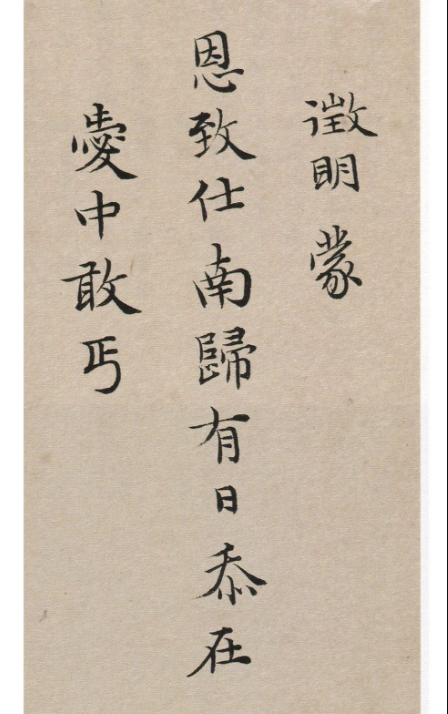 徵明蒙
恩致仕南歸有日忝在
愛中敢丐